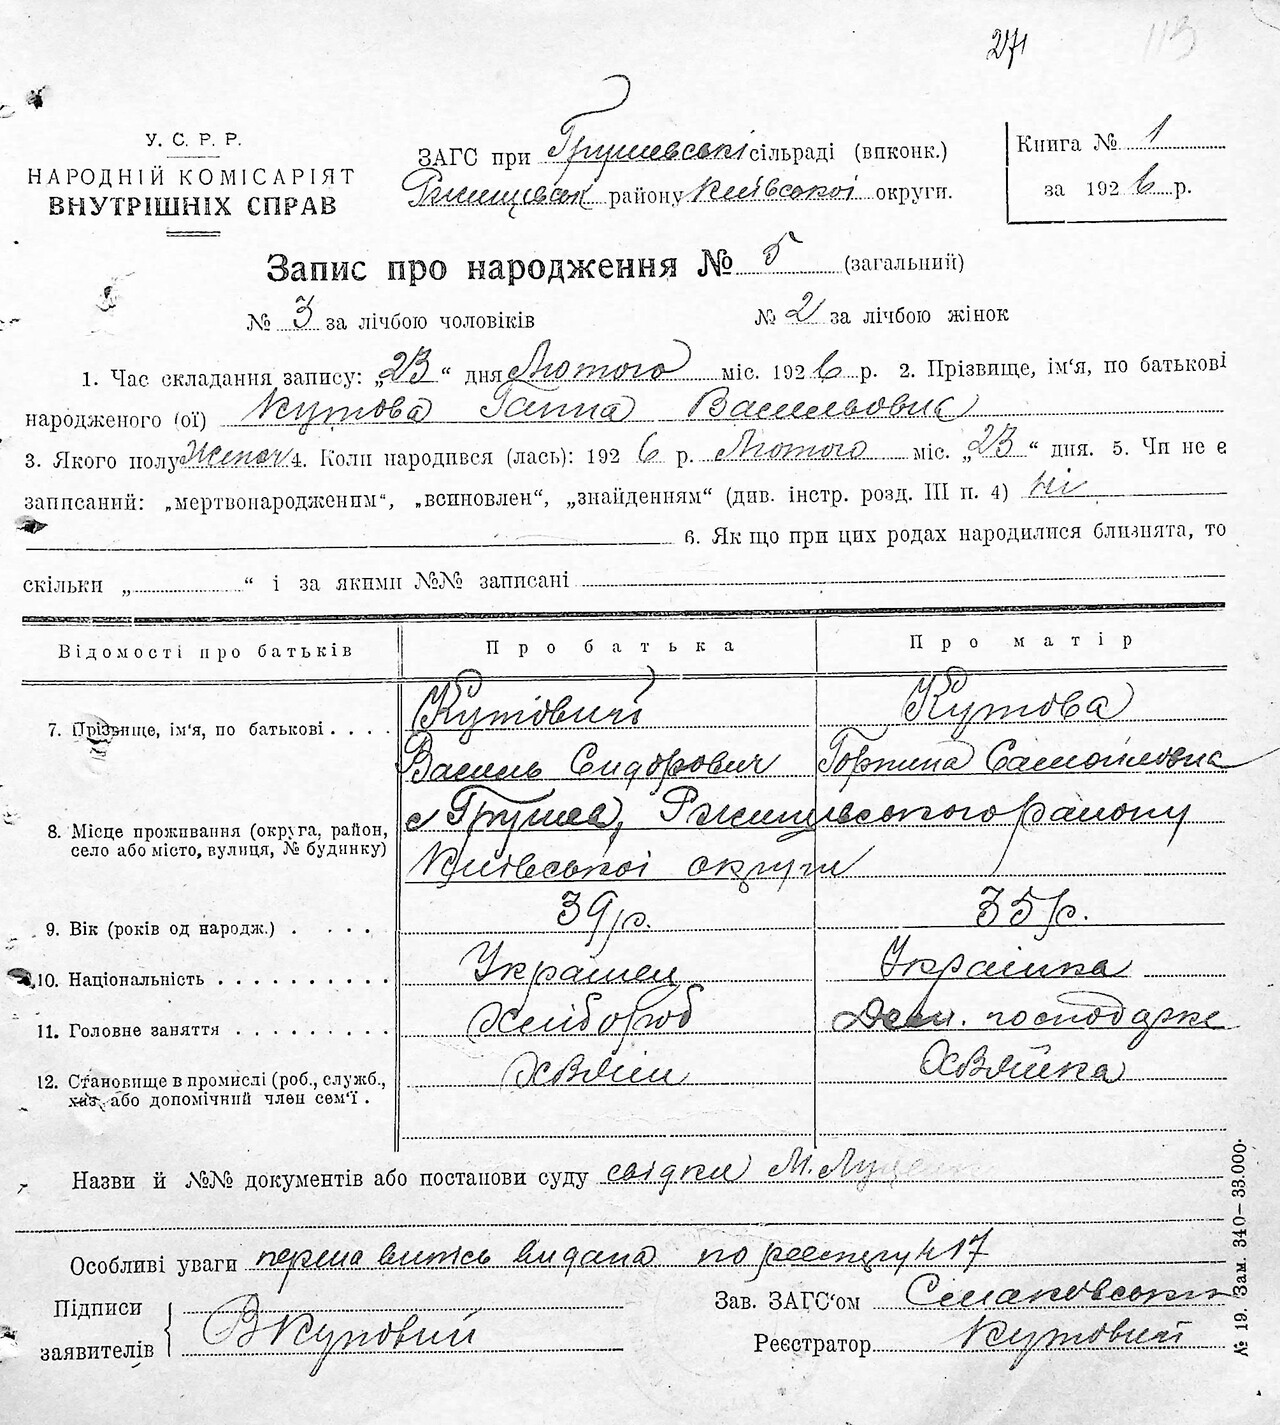 271 113
У. С. Р. Р.
НАРОДНІЙ КОМІСАРІЯТ
ВНУТРІШНІХ СПРАВ
ЗАГС при Грушевські сільраді (впконк.)
Ржищівськ району Київської округи.
Книга № 1
за 1926 р.
Запис про народження № 5 (загальний)
№ 3 за лічбою чоловіків № 2 за лічбою жінок
1. Час складання запису: „23“ дня Лютого міс. 1926 р. 2. Прізвище, ім‘я, по батькові
народженого (ої) Кутова Ганна Васильовна
3. Якого полу Жіноч 4. Коли народився (лась): 1926 р. Лютого міс. „23“ дня. 5. Чи не є
записаний: „мертвонародженим“, „всиновлен“, „знайденням“ (див. інстр. розд. III п. 4) ні
6. Як що при цих родах народилися близнята, то
скільки „ “ і за якими №№ записані
Відомості про батьків Про батька Про матір
7. Прізвище, ім‘я, по батькові . . . . Кутовий Кутова
Василь Сидорович Горпина Самойловна
8. Місце проживання (округа, район, с Грушев, Ржищівського району
село або місто, вулиця, № будинку) Київської округи
9. Вік (років од народж.) . . . . 39 р. 35 р.
10. Національність . . . . . . . . . . Українец Українка
11. Головне заняття . . . . . . . . . Хлібороб Дом. господарке
12. Становище в промислі (роб., служб., Хазяїн Хазяйка
хаз., або допомічний член сем‘ї .
Назви й №№ документів або постанови суду свідки М. Луценк
Особливі уваги перша витісь видана по реєстру № 17
Підписи
заявителів В Кутовий
Зав. ЗАГС‘ом Сімаковський
Реєстратор Кутовий
№ 19. Зам. 340—33.000.